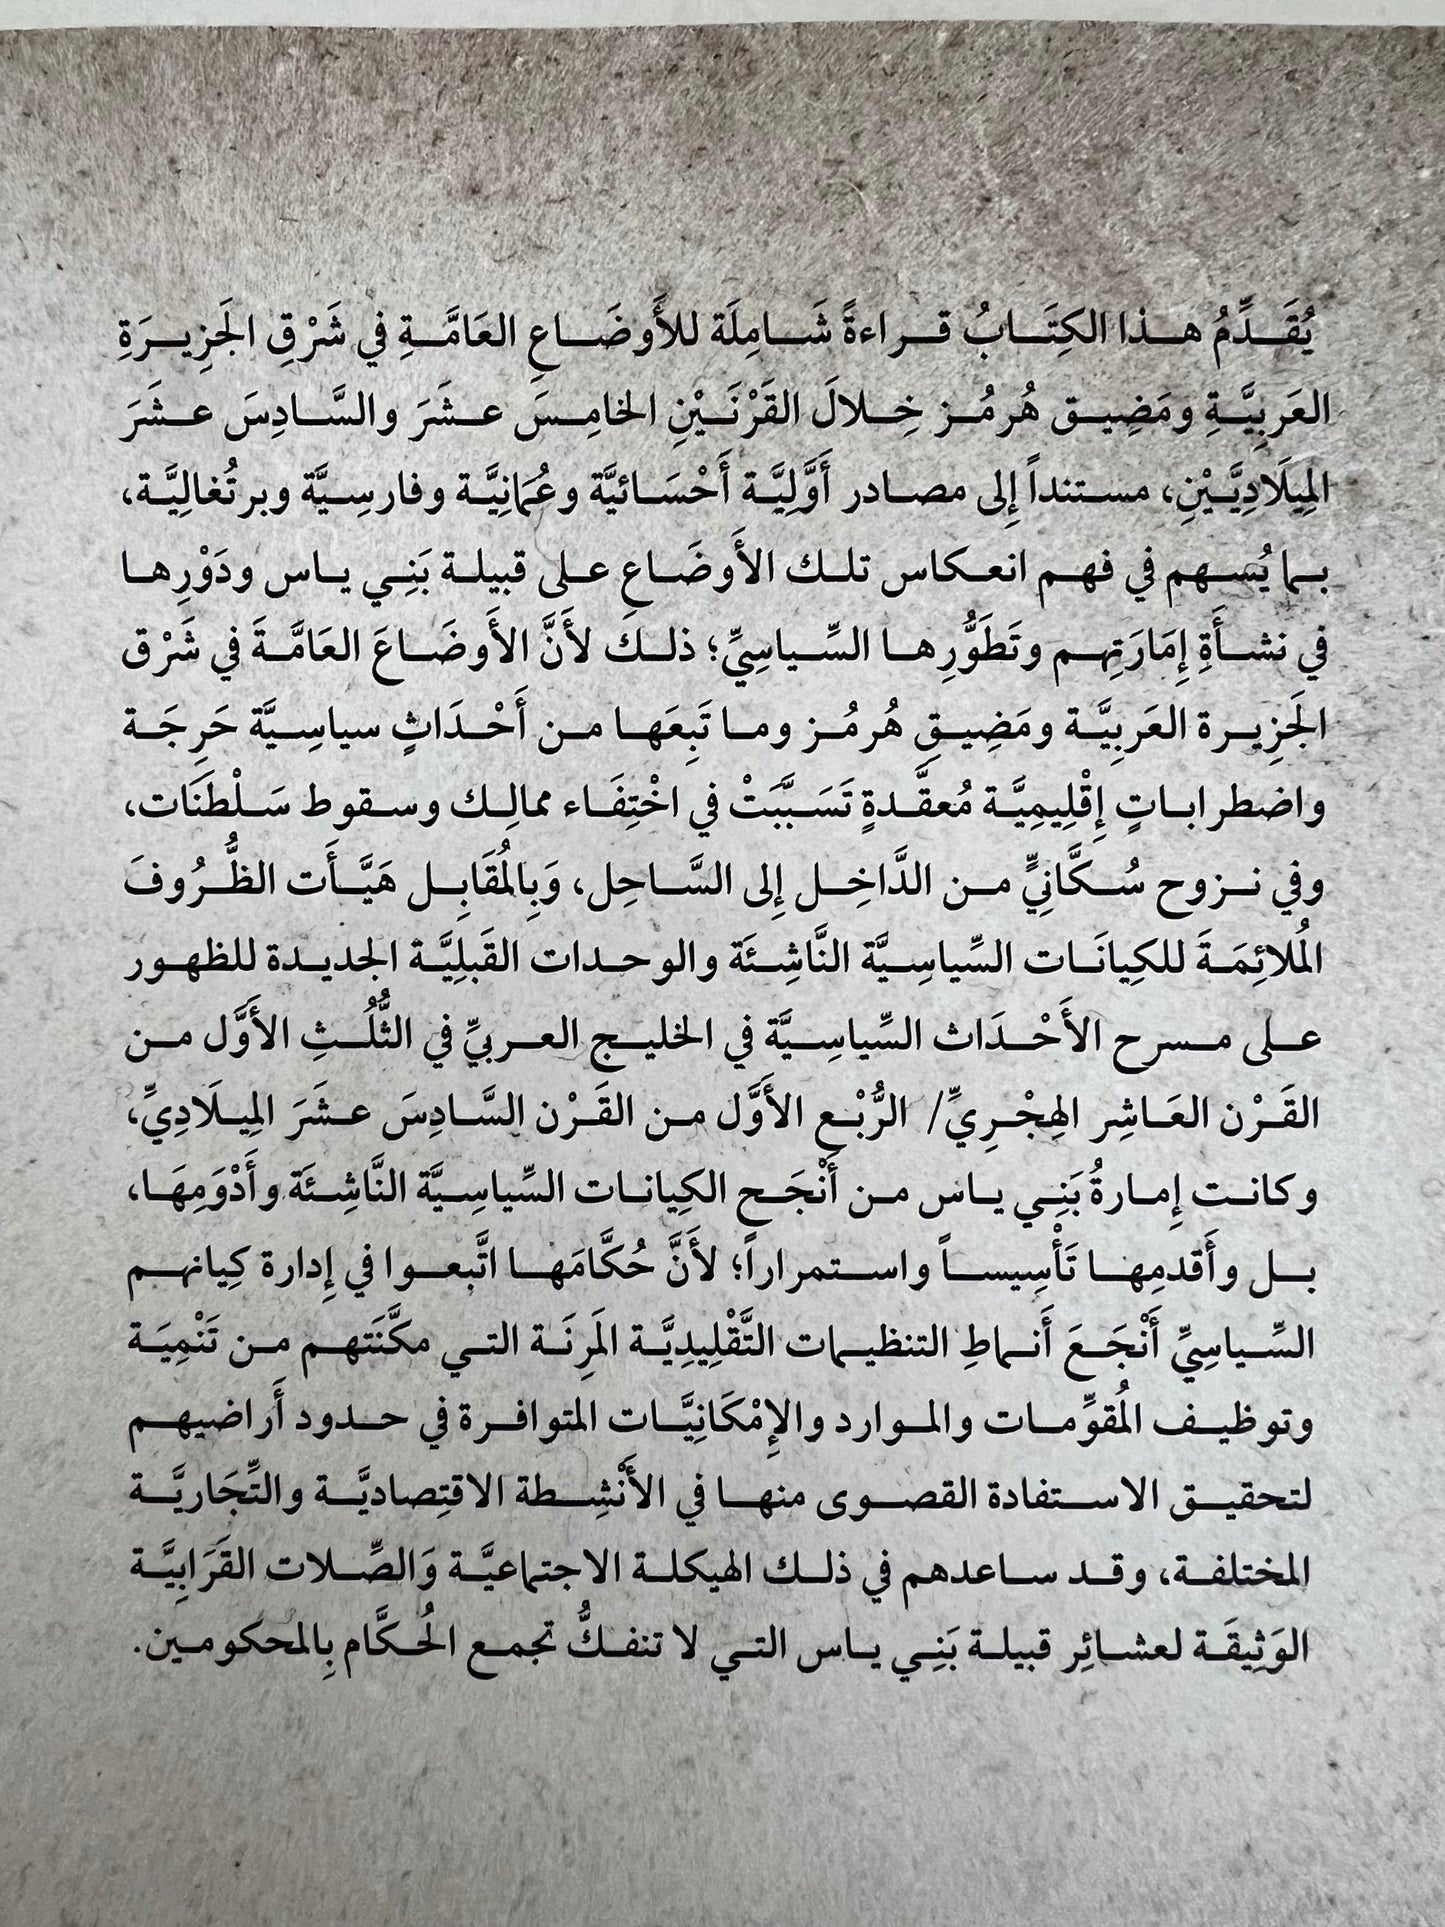 يُقَدِّمُ هذا الكِتَابُ قراءةً شَامِلَة للأَوضَاعِ العَامَّةِ في شَرْقِ الجَزِيرَةِ
العَرَبِيَّةِ ومَضِيق هُرمُز خِلالَ القَرْنَيْنِ الخامِسَ عشَرَ والسَّادِسَ عشَرَ
المِيلَادِيَّيْنِ، مستنداً إِلى مصادر أَوَّلِيَّة أَحْسَائيَّة وعُمَانِيَّة وفارسِيَّة وبرتُغالِيَّة،
بما يُسهم في فهم انعكاس تلك الأَوضَاعِ على قبيلة بَنِي ياس ودَوْرِها
في نشأَةِ إِمَارَتِهم وتَطَوُّرِها السِّياسِيِّ؛ ذلك لأَنَّ الأَوضَاعَ العَامَّةَ في شَرْق
الجَزِيرة العَرَبِيَّة ومَضِيقِ هُرمُز وما تَبِعَها من أَحْدَاثٍ سياسِيَّة حَرِجَة
واضطراباتٍ إِقْلِيمِيَّة مُعقَّدةٍ تَسَبَّبَتْ في اخْتِفَاء ممالِك وسقوط سَلْطَنَات،
وفي نزوح سُكَّانِيٍّ من الدَّاخِل إِلى السَّاحِل، وَبِالمُقَابِل هَيَّأَت الظُّرُوفَ
المُلائِمَةَ للكِيانَات السِّياسِيَّة النَّاشِئَة والوحدات القَبلِيَّة الجديدة للظهور
على مسرح الأَحْدَاث السِّياسِيَّة في الخليج العربيِّ في الثُّلُثِ الأَوَّل من
القَرْن العَاشِر الهِجْرِيِّ/ الرُّبْعِ الأَوَّل من القَرْن السَّادِسَ عشَرَ المِيلَادِيِّ،
وكانت إِمارةُ بَنِي ياس من أَنْجَح الكِيانات السِّياسِيَّة النَّاشِئَة وأَدْوَمِهَا،
بل وأَقدمِها تَأْسِيساً واستمراراً؛ لأَنَّ حُكَّامَها اتَّبعوا في إِدارة كِيانهم
السِّياسِيِّ أَنْجَعَ أَنماطِ التنظيمات التَّقْلِيدِيَّة المَرِنَة التي مكَّنَتهم من تَنْمِيَة
وتوظيف المُقوِّمات والموارد والإِمْكَانِيَّات المتوافرة في حدود أَراضيهم
لتحقيق الاستفادة القصوى منها في الأَنْشِطة الاقتِصاديَّة والتِّجَاريَّة
المختلفة، وقد ساعدهم في ذلك الهيكلة الاجتماعيَّة وَالصِّلات القَرَابِيَّة
الوَثِيقَة لعشائِر قبيلة بَنِي ياس التي لا تنفكُّ تجمع الحُكَّام بِالمحكومين.